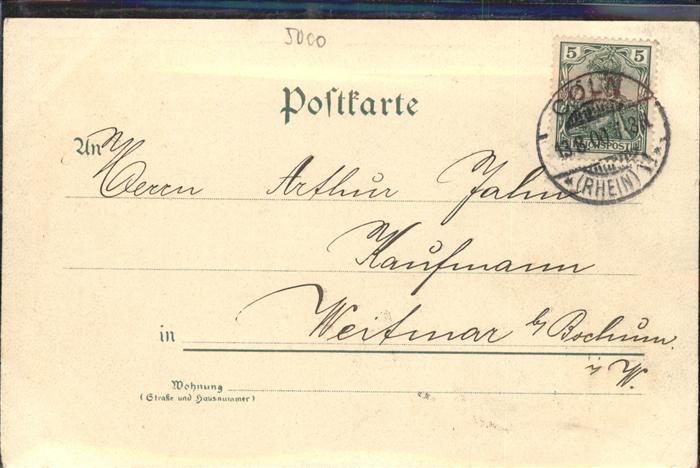 5000
5
Postkarte
CÖLN
REICHSPOST
(RHEIN)
An
Herrn Arthur Jahn
Kaufmann
in Weitmar b/ Bochum.
i/ W.
Wohnung
(Straße und Hausnummer)